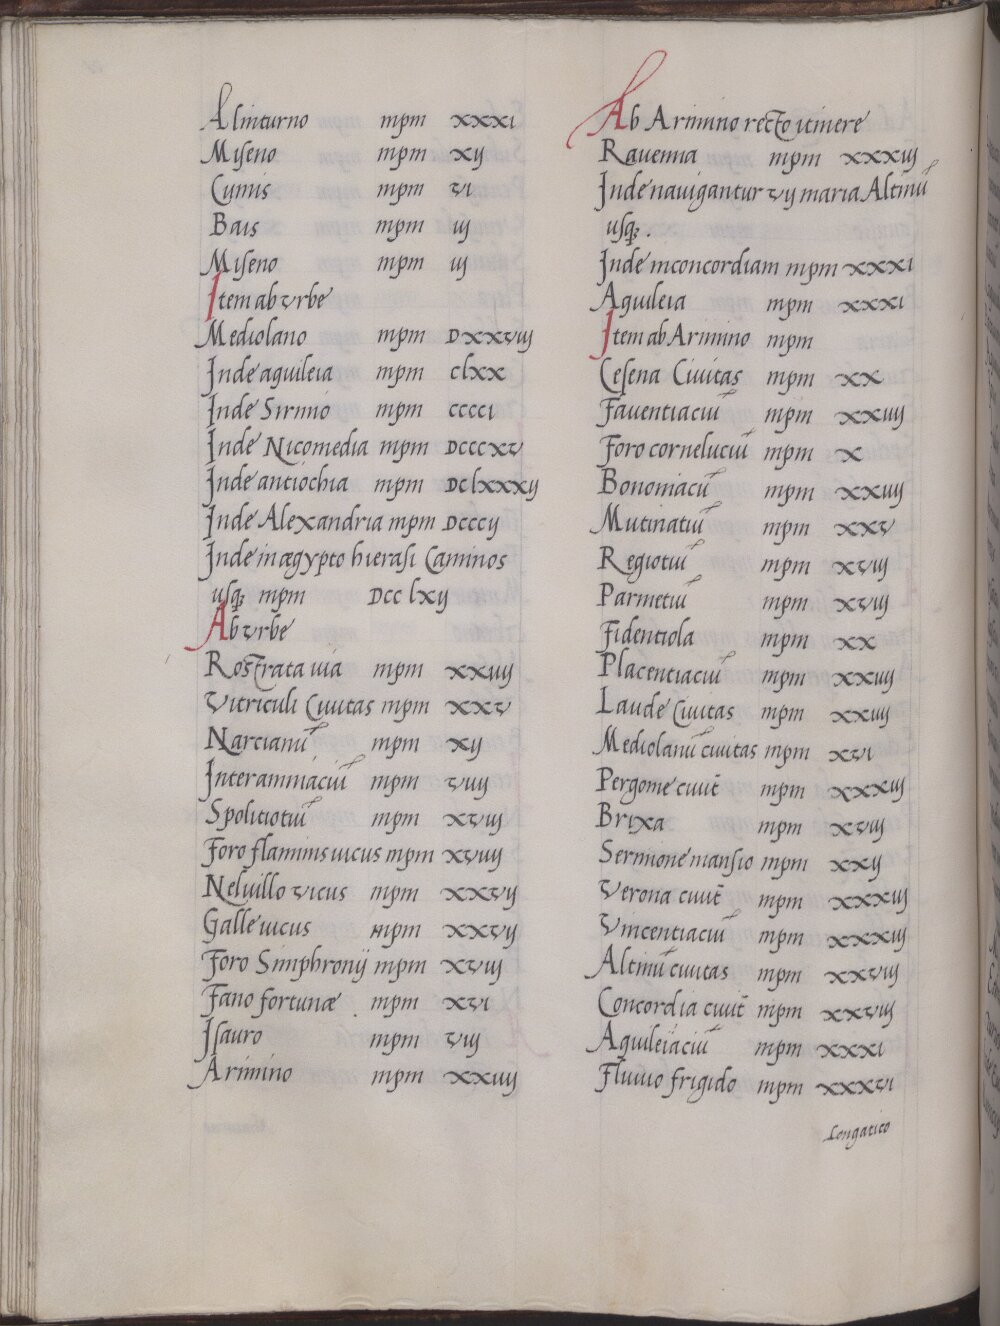 Alinturno mpm xxxi
Miseno mpm xij
Cumis mpm vi
Bais mpm iij
Miseno mpm iij
Item ab vrbe
Mediolano mpm Dxxviij
Inde aquileia mpm clxx
Inde Sirmio mpm cccci
Inde Nicomedia mpm Dcccxv
Inde antiochia mpm Dclxxxij
Inde Alexandria mpm Dcccij
Inde in ægypto hierasi Caminos
usq; mpm Dcclxij
Ab vrbe
Rostrata uia mpm xxiiij
Vtriculi Ciuitas mpm xxv
Narcianū mpm xij
Interamniaciuī mpm viij
Spolitiotuī mpm xviij
Foro flaminis uicus mpm xviiij
Neluillo vicus mpm xxvij
Galle uicus mpm xxvij
Foro Simphronij mpm xviij
Fano fortunæ mpm xvi
Isauro mpm viij
Arimino mpm xxiiij
Ab Arimino recto itinere
Rauenna mpm xxxiij
Inde nauigantur vij maria Altinū
usq;.
Inde inconcordiam mpm xxxi
Aquileia mpm xxxi
Item ab Arimino mpm
Cesena Ciuitas mpm xx
Fauentiaciuī mpm xxiiij
Foro corneluciuī mpm x
Bononiacū mpm xxiiij
Mutinatuī mpm xxv
Regiotuī mpm xviij
Parmetuī mpm xviij
Fidentiola mpm xx
Placentiaciuī mpm xxiiij
Laude Ciuitas mpm xxiiij
Mediolanū ciuitas mpm xvi
Pergome ciuit̄ mpm xxxiij
Brixa mpm xviij
Sermione mansio mpm xxij
Verona ciuit̄ mpm xxxiij
Vincentiaciuī mpm xxxiij
Altinū ciuitas mpm xxviij
Concordia ciuit̄ mpm xxviij
Aquileiaciuī mpm xxxi
Fluuio frigido mpm xxxvi
Longatico